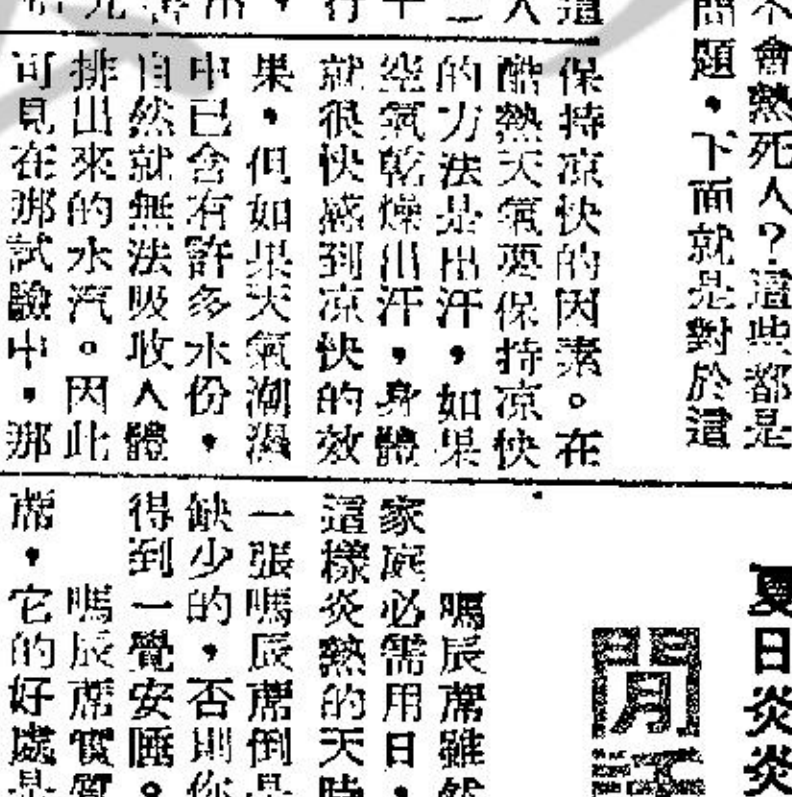 不會熱死人？這些都是
問題，下面就是對於這
保持凉快的因素。在
酷熱天氣要保持凉快
的方法是出汗，如果
空氣乾燥出汗，身體
就很快感到凉快的效
果，但如果天氣潮濕
中已含有許多水份，
自然就無法吸收人體
排出來的水汽。因此
可見在那試驗中，那
夏日炎炎
閒話
嗎辰蓆雖然
家庭必需用日，
這樣炎熱的天時
一張嗎辰蓆倒是
缺少的，否則你
得到一覺安睡。
嗎辰蓆實質
蓆，它的好處是